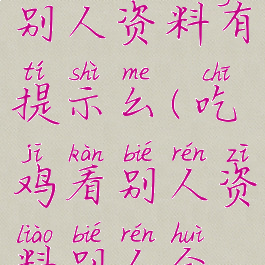 别人资料有
tí shì me chī
提示么(吃
jī kàn bié rén zī
鸡看别人资
liào bié rén huì
料别人会